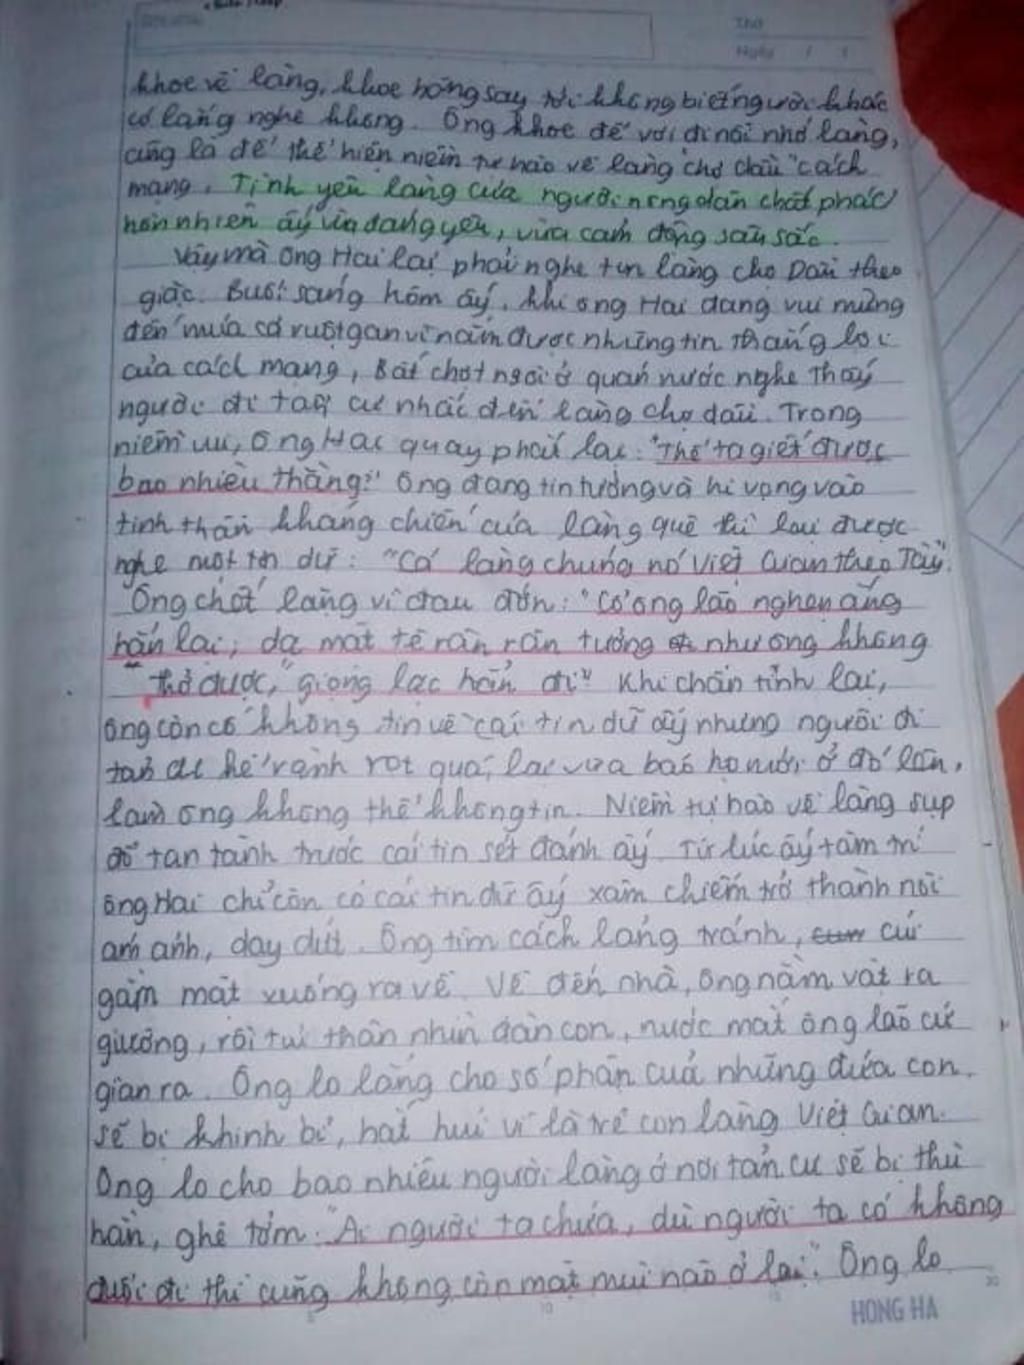 Thứ
Ngày / /
khoe về làng, khoe hăng say tới không biết người khác
có lắng nghe không. Ông khoe để vơi đi nỗi nhớ làng,
cũng là để thể hiện niềm tự hào về làng chợ dầu "cách
mạng. Tình yêu làng của người nông dân chất phác
hồn nhiên ấy vừa đáng yêu, vừa cảm động sâu sắc.
Vậy mà ông Hai lại phải nghe tin làng chợ Dầu theo
giặc. Buổi sáng hôm ấy, khi ông Hai đang vui mừng
đến múa cả ruột gan vì nắm được những tin thắng lợi
của cách mạng, Bất chợt ngồi ở quán nước nghe thấy
người đi tản cư nhắc đến làng chợ dầu. Trong
niềm vui, ông Hai quay phắt lại: "Thế ta giết được
bao nhiêu thằng?" Ông đang tin tưởng và hi vọng vào
tinh thần kháng chiến của làng quê thì lại được
nghe một tin dữ: "Cả làng chúng nó Việt Gian theo Tây".
Ông chết lặng vì đau đớn: "Cổ ông lão nghẹn ắng
hẳn lại; da mặt tê rân rân tưởng như ông không
"thở được," giọng lạc hẳn đi" Khi chấn tỉnh lại,
ông còn cố không tin về cái tin dữ ấy nhưng người đi
tản cư kể rành rọt quá, lại vừa bảo họ mới ở đó lên,
làm ông không thể không tin. Niềm tự hào về làng sụp
đổ tan tành trước cái tin sét đánh ấy. Từ lúc ấy tâm trí
ông Hai chỉ còn có cái tin dữ ấy xâm chiếm trở thành nỗi
ám ảnh, day dứt. Ông tìm cách lảng tránh, cứ
gằm mặt xuống ra về. Về đến nhà, ông nằm vật ra
giường, rồi tủi thân nhìn đàn con, nước mắt ông lão cứ
giàn ra. Ông lo lắng cho số phận của những đứa con.
sẽ bị khinh bỉ, hắt hủi vì là trẻ con làng Việt Gian.
Ông lo cho bao nhiêu người làng ở nơi tản cư sẽ bị thù
hằn, ghê tởm. "Ai người ta chứa, dù người ta có không
đuổi đi thì cũng không còn mặt mũi nào ở lại". Ông lo
HONG HA